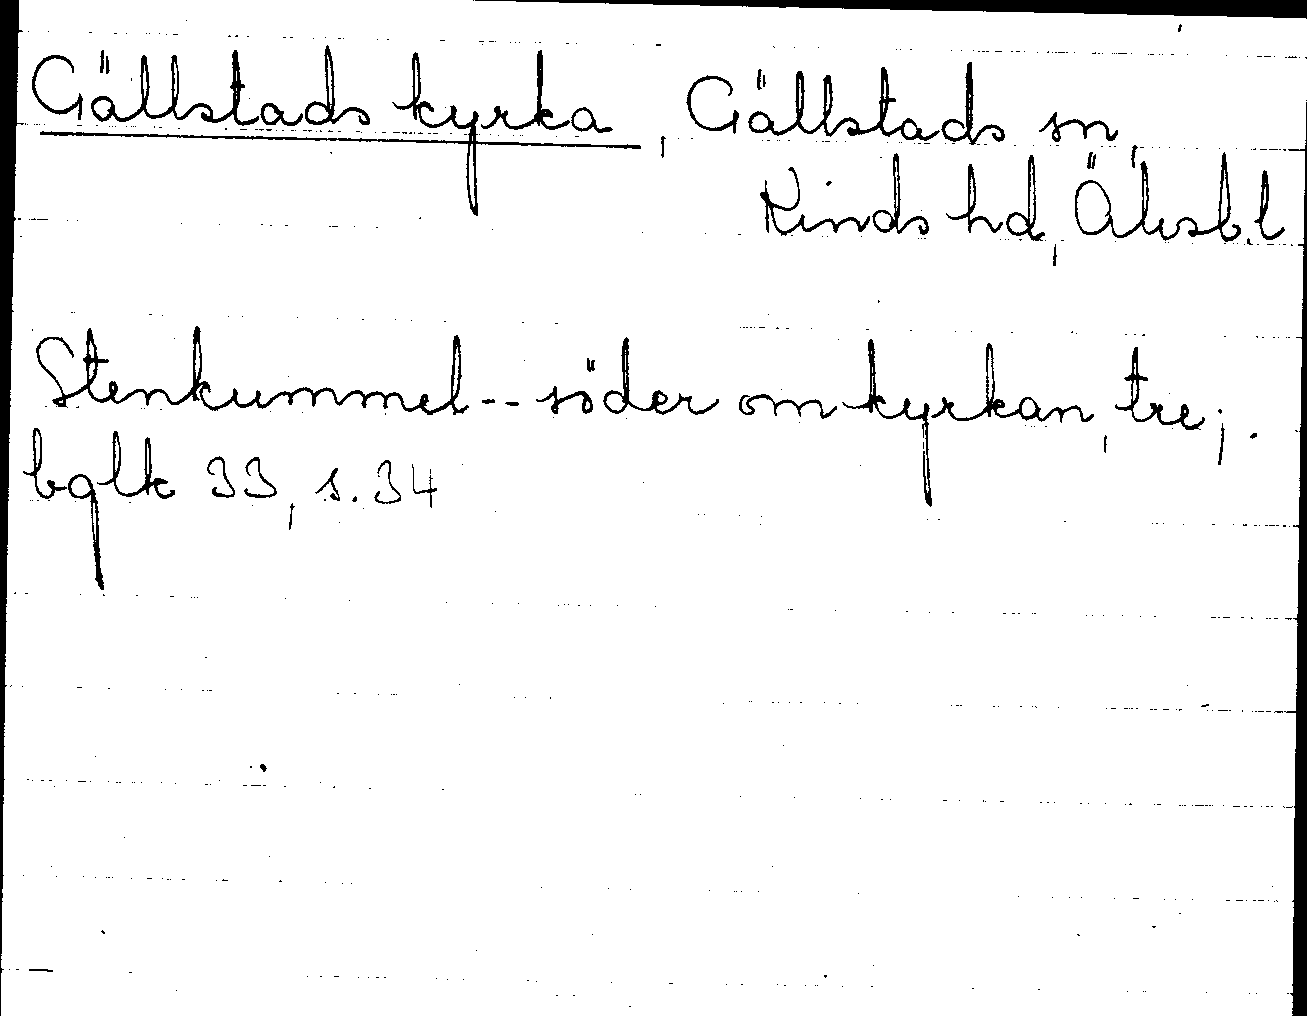 Gällstads kyrka, Gällstads sn,
Kinds hd, Älvsb.l
Stenkummel -- söder om kyrkan, tre;.
bglk 33, s. 34